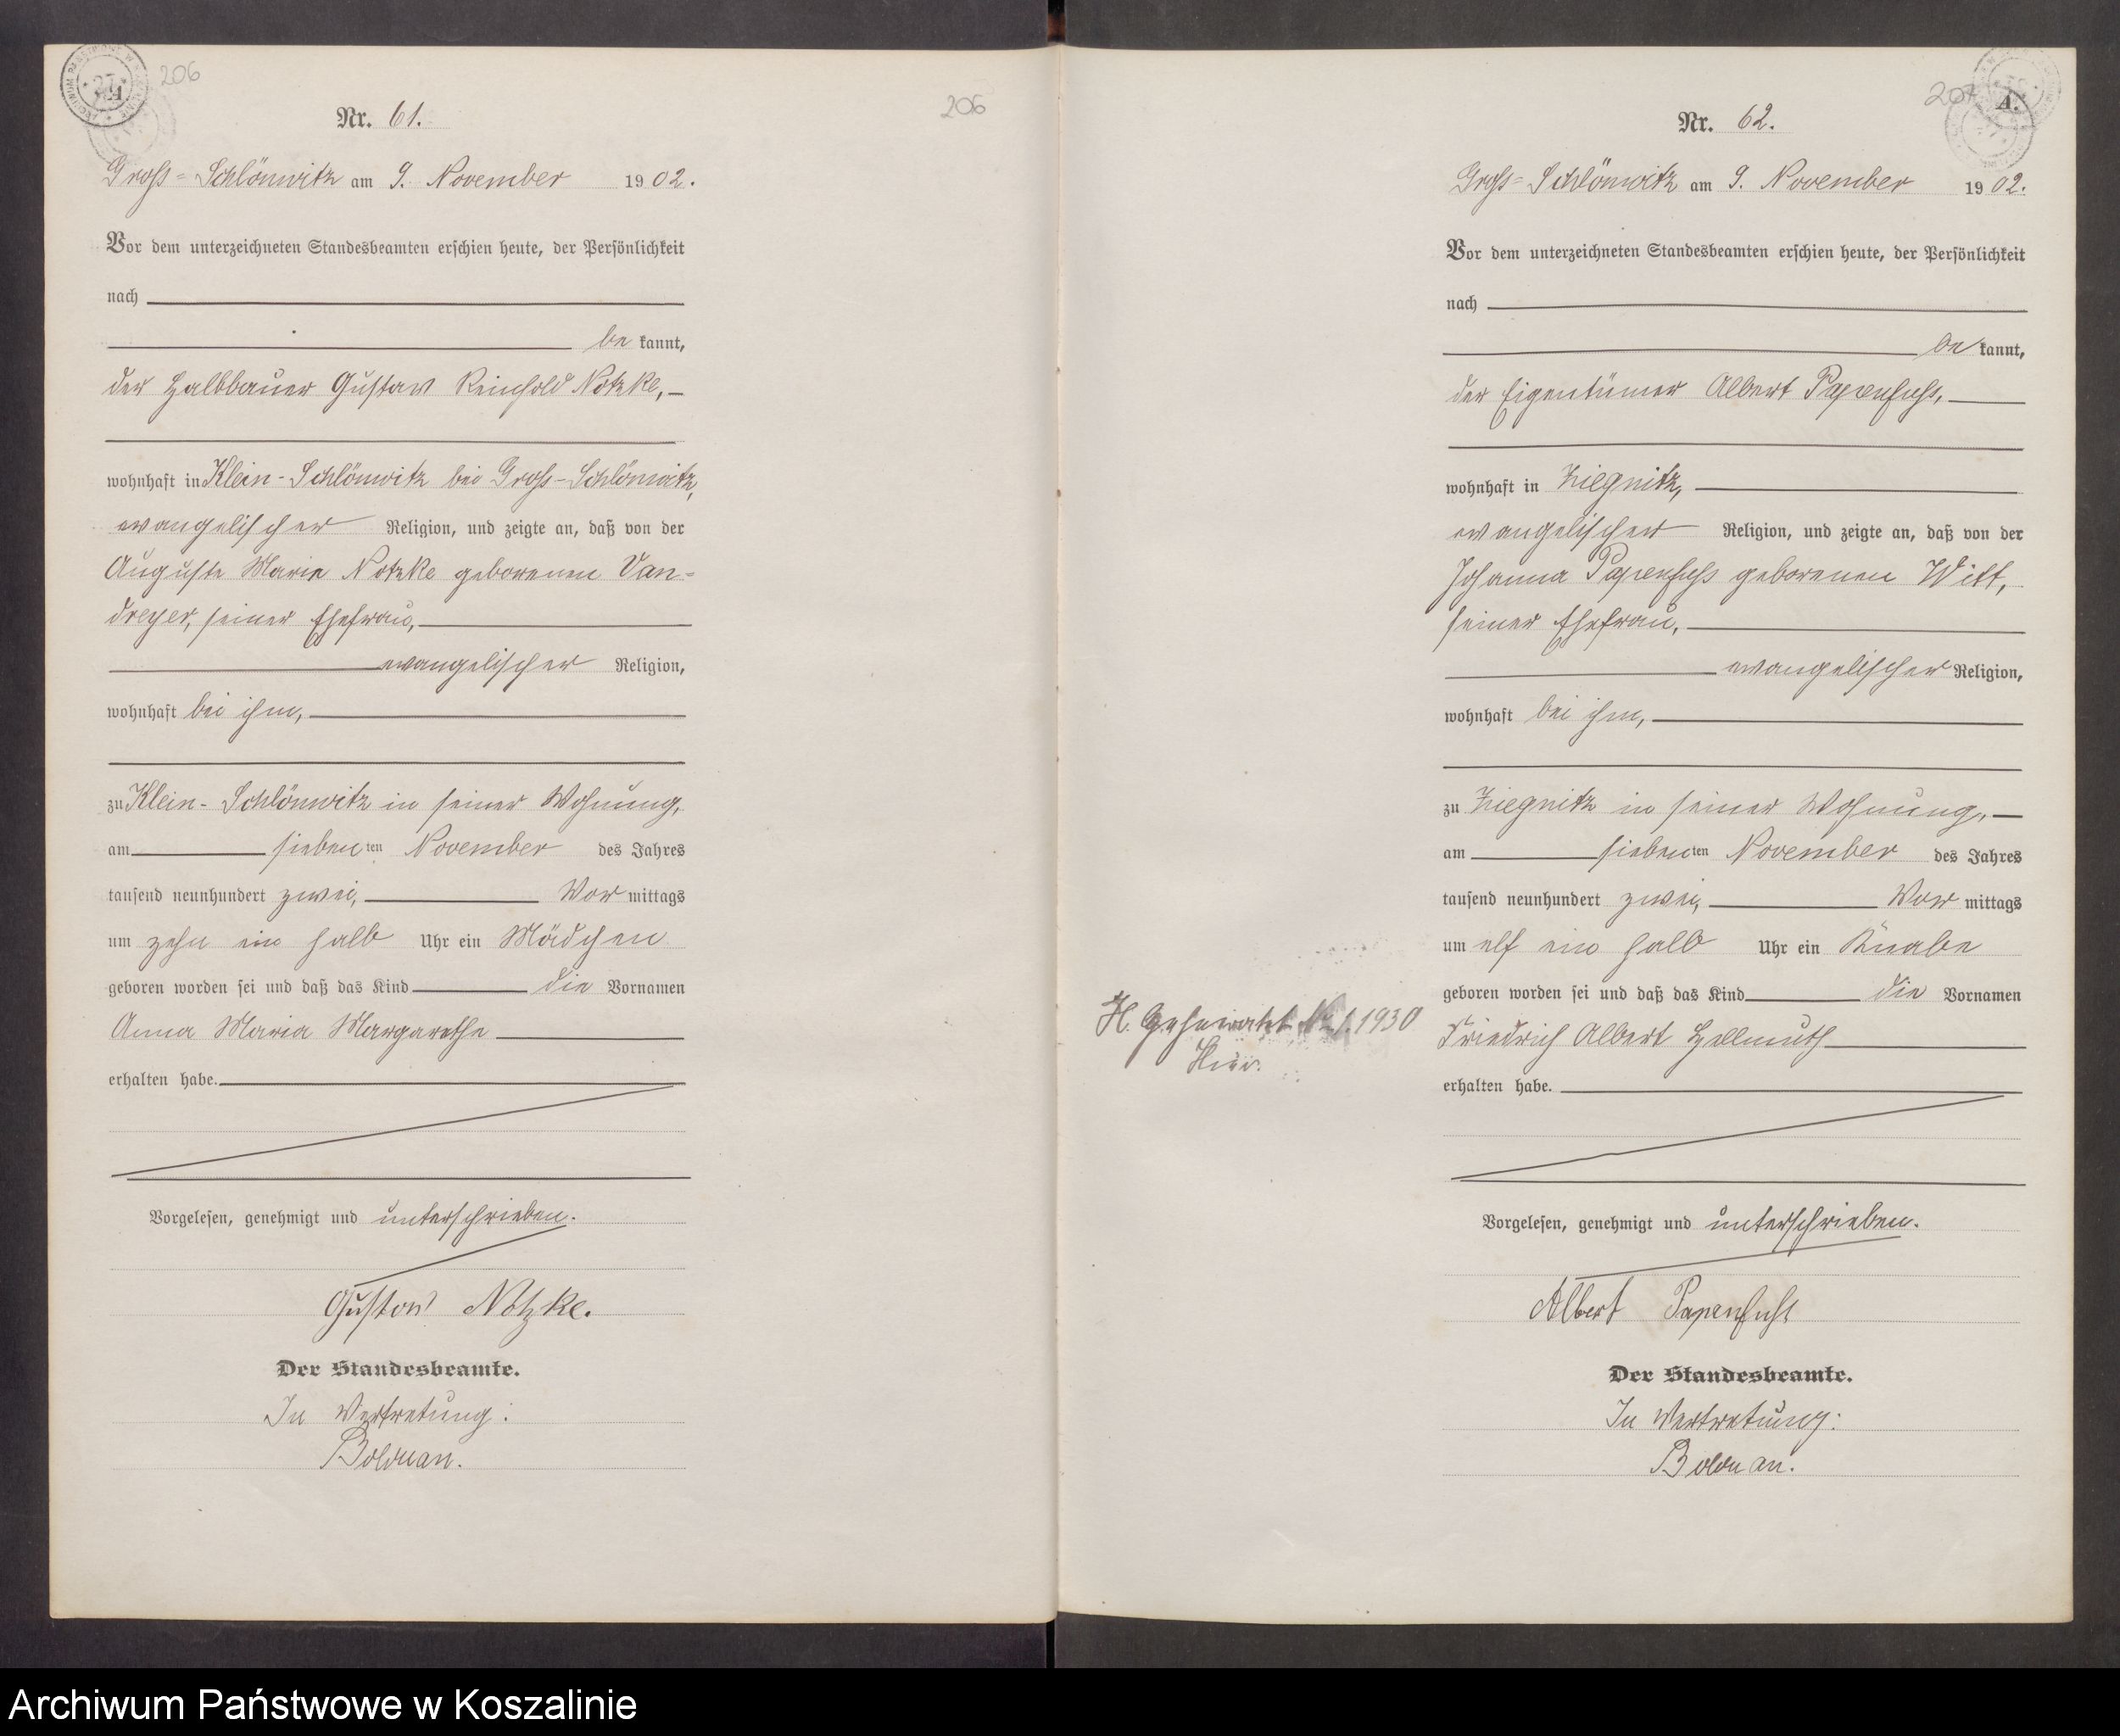 206
Nr. 61.
Gross-Schlönwitz am 9. November 1902.
Vor dem unterzeichneten Standesbeamten erschien heute, der Persönlichkeit
nach
be kannt,
der Halbbauer Gustav Reinhold Notzke,
wohnhaft in Klein-Schlönwitz bei Gross-Schlönwitz,
evangelischer Religion, und zeigte an, daß von der
Auguste Marie Notzke geborenen Van-
dreyer, seiner Ehefrau,
evangelischer Religion,
wohnhaft bei ihm,
zu Klein-Schlönwitz in seiner Wohnung,
am siebenten November des Jahres
tausend neunhundert zwei, Vor mittags
um zehn ein halb Uhr ein Mädchen
geboren worden sei und daß das Kind die Vornamen
Anna Maria Margarethe
erhalten habe.
Vorgelesen, genehmigt und unterschrieben.
Gustav Notzke.
Der Standesbeamte.
In Vertretung:
Bolduan.
206
207
A.
Nr. 62.
Gross-Schlönwitz am 9. November 1902.
Vor dem unterzeichneten Standesbeamten erschien heute, der Persönlichkeit
nach
be kannt,
der Eigentümer Albert Papenfuss,
wohnhaft in Ziegnitz,
evangelischer Religion, und zeigte an, daß von der
Johanna Papenfuss geborenen Witt,
seiner Ehefrau,
evangelischer Religion,
wohnhaft bei ihm,
zu Ziegnitz in seiner Wohnung,
am siebenten November des Jahres
tausend neunhundert zwei, Vor mittags
um elf ein halb Uhr ein Knabe
geboren worden sei und daß das Kind die Vornamen
Friedrich Albert Hellmuth
erhalten habe.
H. Geheiratet 1930
Hier.
Vorgelesen, genehmigt und unterschrieben.
Albert Papenfuss
Der Standesbeamte.
In Vertretung:
Bolduan.
Archiwum Państwowe w Koszalinie